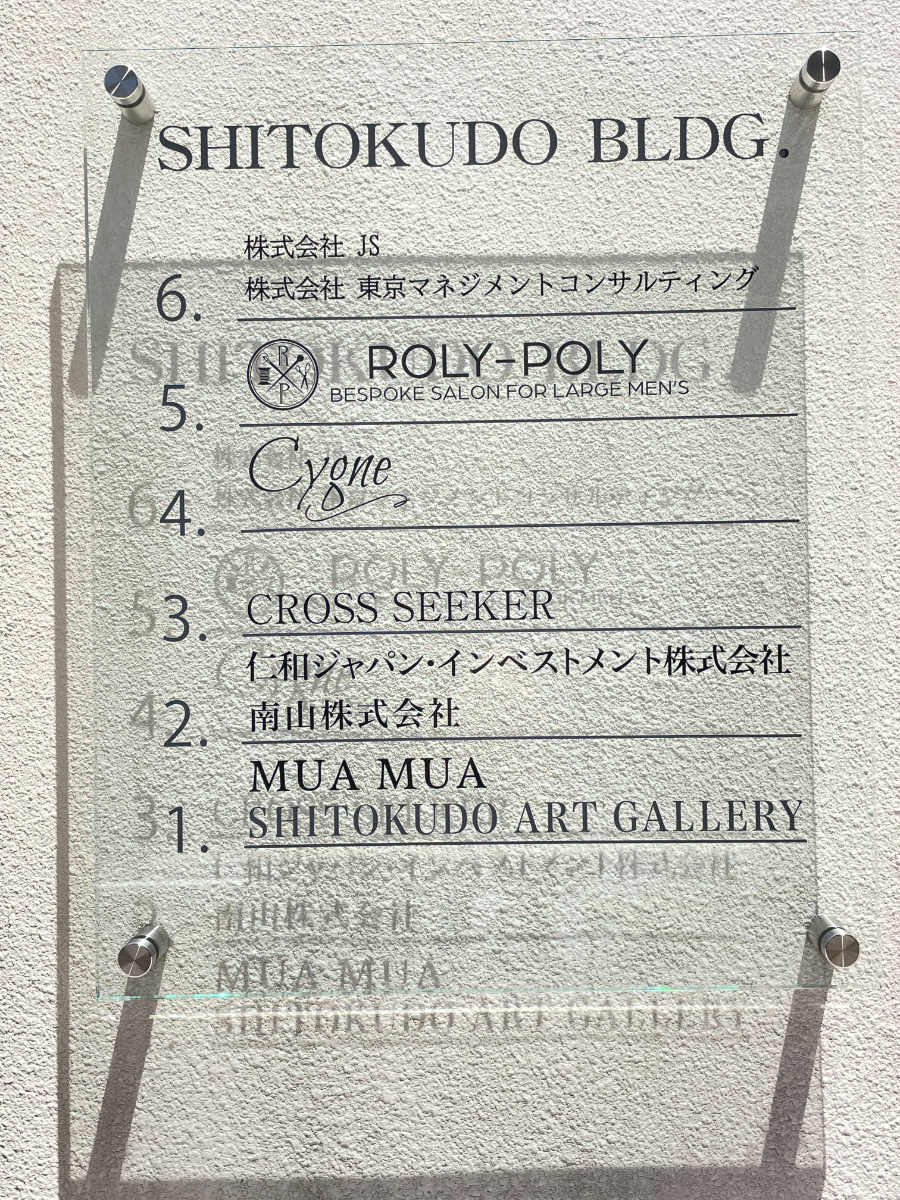 SHITOKUDO BLDG.
株式会社 JS
6. 株式会社 東京マネジメントコンサルティング
R P
ROLY-POLY
5. BESPOKE SALON FOR LARGE MEN'S
4. Cygne
3. CROSS SEEKER
仁和ジャパン・インベストメント株式会社
2. 南山株式会社
MUA MUA
1. SHITOKUDO ART GALLERY